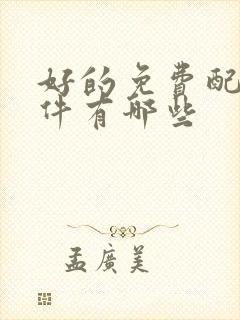 好的免費配
件有哪些
孟廣美